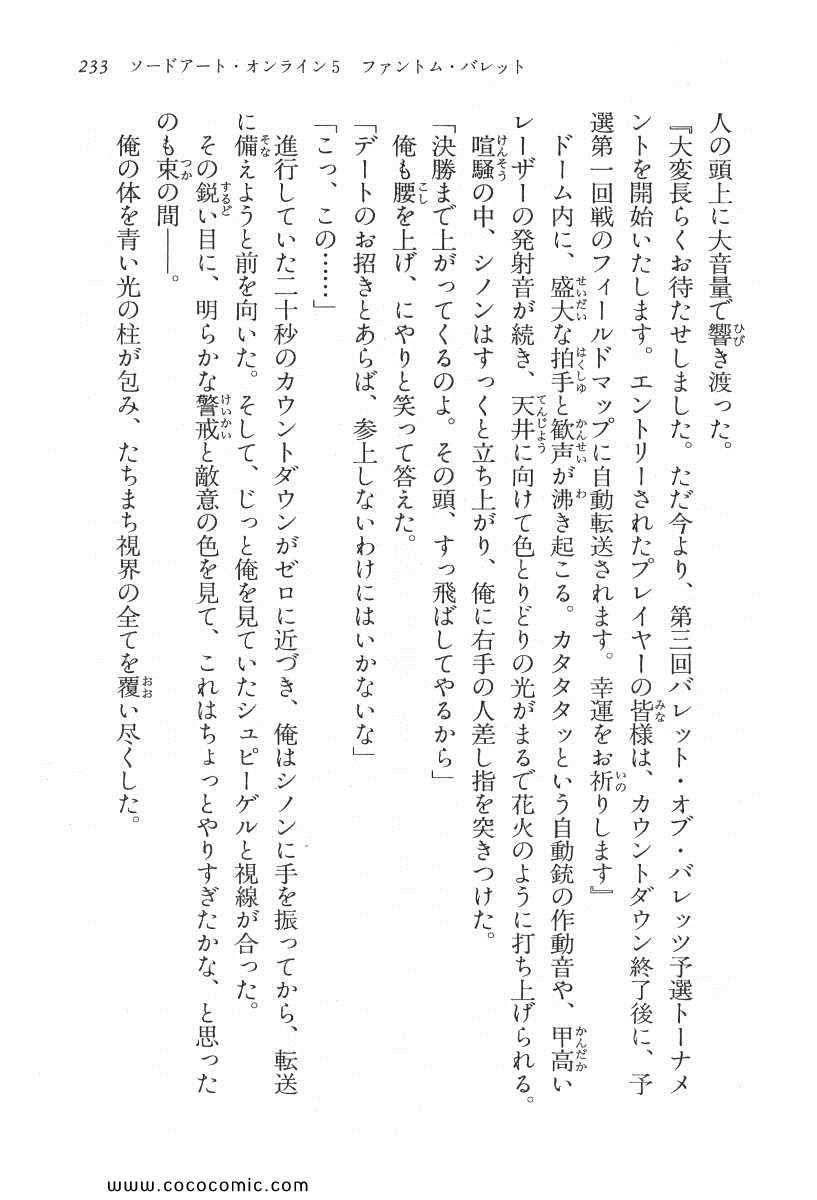 233 ソードアート・オンライン5 ファントム・バレット
人の頭上に大音量で響き渡った。
『大変長らくお待たせしました。ただ今より、第三回バレット・オブ・バレッツ予選トーナメ
ントを開始いたします。エントリーされたプレイヤーの皆様は、カウントダウン終了後に、予
選第一回戦のフィールドマップに自動転送されます。幸運をお祈りします』
ドーム内に、盛大な拍手と歓声が沸き起こる。カタタタッという自動銃の作動音や、甲高い
レーザーの発射音が続き、天井に向けて色とりどりの光がまるで花火のように打ち上げられる。
喧騒の中、シノンはすっくと立ち上がり、俺に右手の人差し指を突きつけた。
「決勝まで上がってくるのよ。その頭、すっ飛ばしてやるから」
俺も腰を上げ、にやりと笑って答えた。
「デートのお招きとあらば、参上しないわけにはいかないな」
「こっ、この……」
進行していた二十秒のカウントダウンがゼロに近づき、俺はシノンに手を振ってから、転送
に備えようと前を向いた。そして、じっと俺を見ていたシュピーゲルと視線が合った。
その鋭い目に、明らかな警戒と敵意の色を見て、これはちょっとやりすぎたかな、と思った
のも束の間――。
俺の体を青い光の柱が包み、たちまち視界の全てを覆い尽くした。
www.cococomic.com